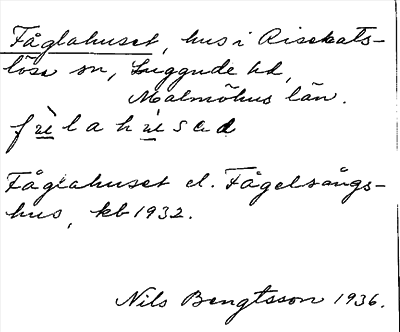 Fåglahuset, hus i Risekats-
lösa sn, Luggude hd,
Malmöhus län.
Fåglahuset el. Fågelsångs-
hus, kb 1932.
Nils Bengtsson 1936.